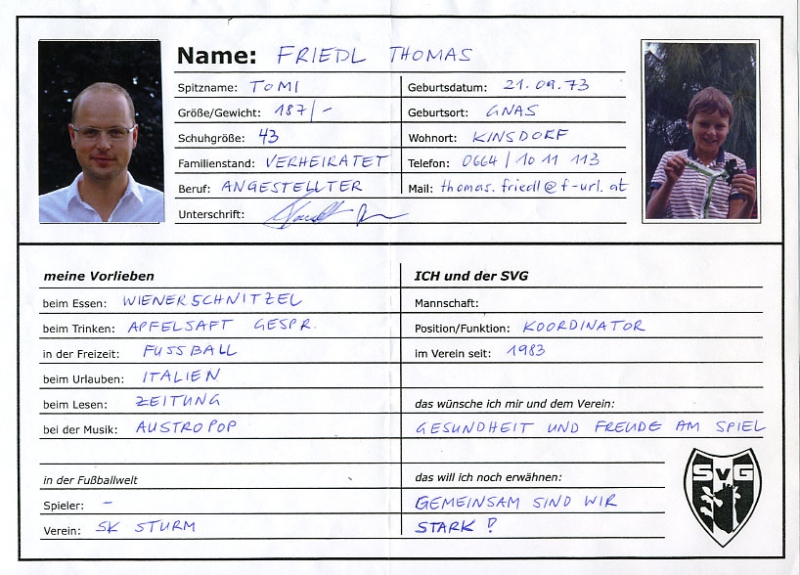 Name: FRIEDL THOMAS
Spitzname: TOMI
Geburtsdatum: 21.09.73
Größe/Gewicht: 187/-
Geburtsort: GNAS
Schuhgröße: 43
Wohnort: KINSDORF
Familienstand: VERHEIRATET
Telefon: 0664/10 11 113
Beruf: ANGESTELLTER
Mail: thomas.friedl@f-url.at
Unterschrift:
meine Vorlieben
beim Essen: WIENERSCHNITZEL
beim Trinken: APFELSAFT GESPR.
in der Freizeit: FUSSBALL
beim Urlauben: ITALIEN
beim Lesen: ZEITUNG
bei der Musik: AUSTROPOP
in der Fußballwelt
Spieler: -
Verein: SK STURM
ICH und der SVG
Mannschaft:
Position/Funktion: KOORDINATOR
im Verein seit: 1983
das wünsche ich mir und dem Verein:
GESUNDHEIT UND FREUDE AM SPIEL
das will ich noch erwähnen:
GEMEINSAM SIND WIR
STARK!
SVG